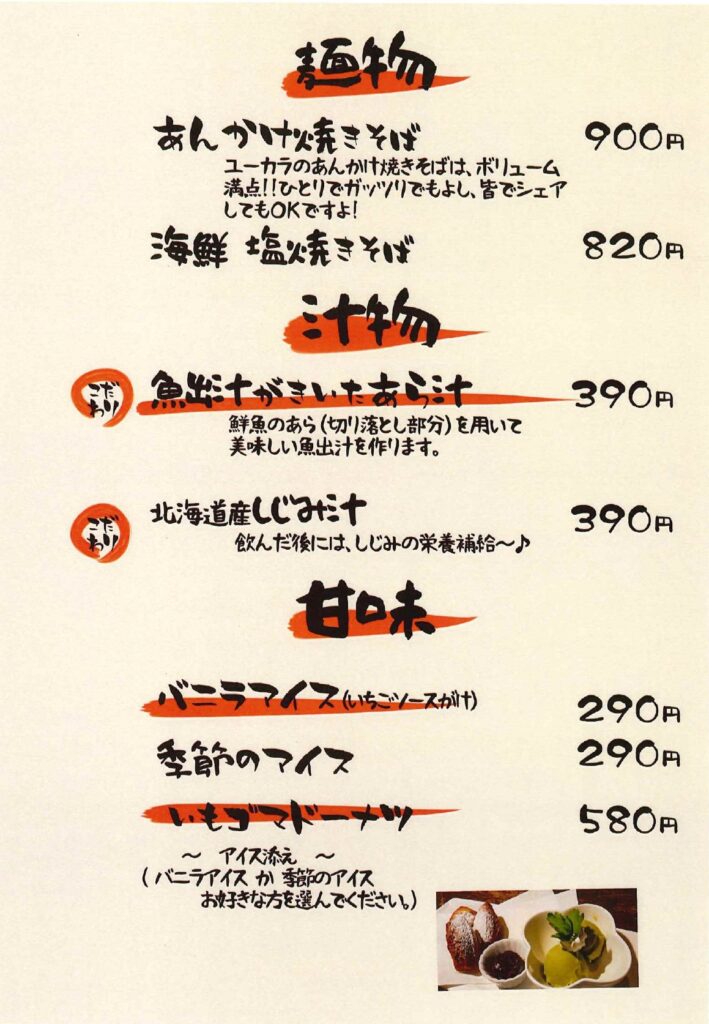 麺物
あんかけ焼きそば 900円
ユーカラのあんかけ焼きそばは、ボリューム
満点!!ひとりでガッツリでもよし、皆でシェア
してもOKですよ!
海鮮 塩焼きそば 820円
汁物
こだわり
魚出汁がきいたあら汁 390円
鮮魚のあら(切り落とし部分)を用いて
美味しい魚出汁を作ります。
こだわり
北海道産しじみ汁 390円
飲んだ後には、しじみの栄養補給〜♪
甘味
バニラアイス(いちごソースがけ) 290円
季節のアイス 290円
いもゴマドーナツ 580円
〜 アイス添え 〜
(バニラアイス か 季節のアイス
お好きな方を選んでください。)